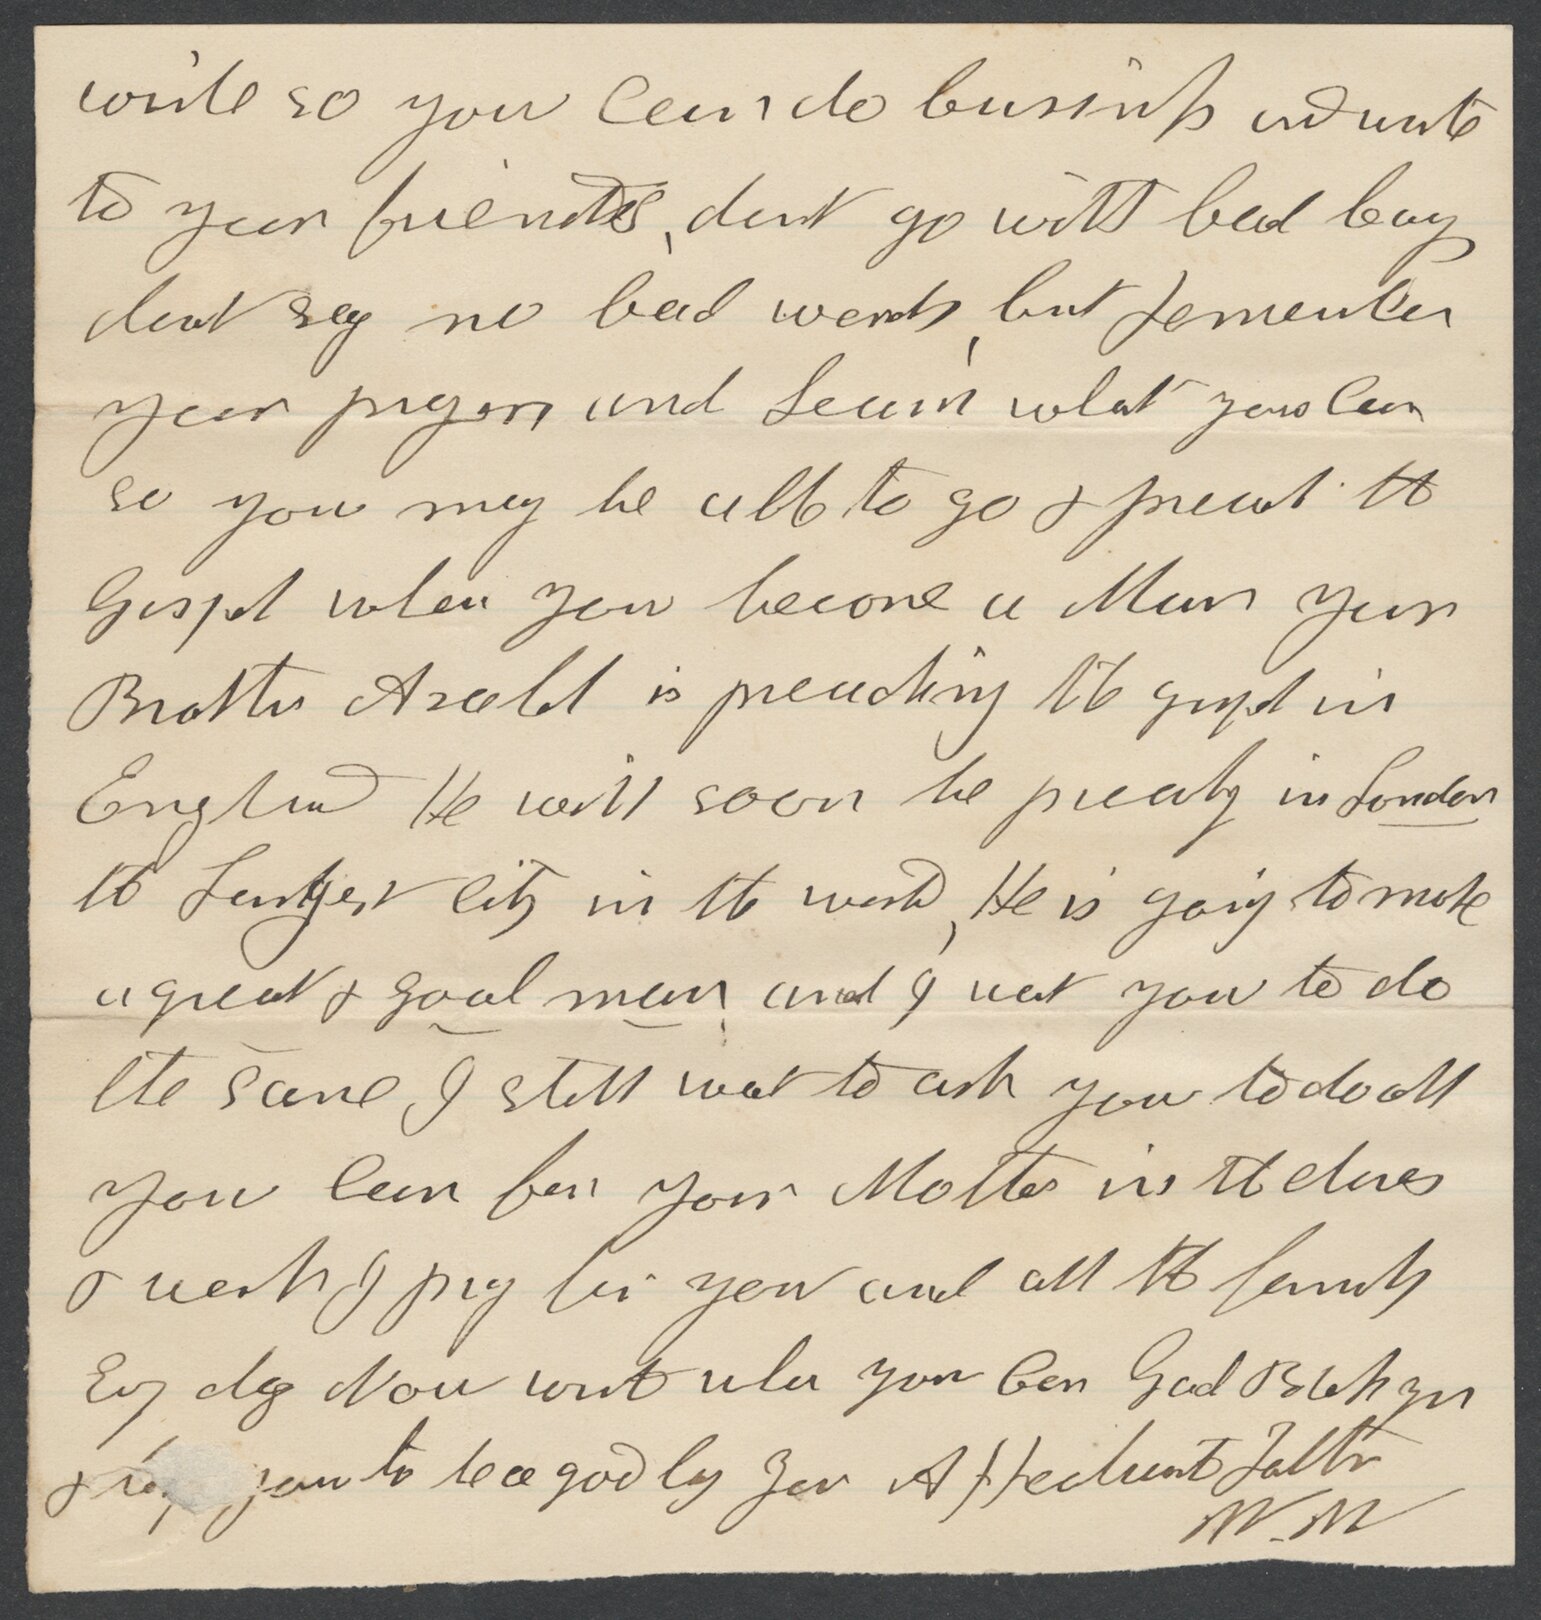 write so you can do business and write
to your friends, dont go with bad boys
dont say no bad words, but remember
your prayers and Learn what you can
so you may be able to go & preach the
Gospel when you become a Man your
Brother Asahel is preaching the gospel in
England He will soon be preachg in London
the Largest City in the world, He is going to make
a great & good man, and I want you to do
the same I still want to ask you to do all
you can for your Mother in the chores
& work I pray for you and all the family
Evry day Now write when you can God Bless you
& you to be a good boy your Affectionate Father
W. W